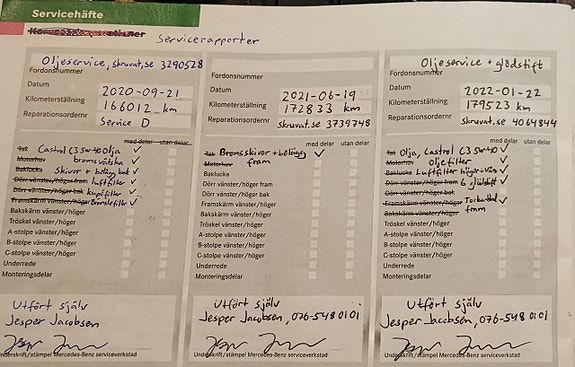 Servicehäfte
Servicerapporter
Oljeservice, skruvat.se 3290528
Fordonsnummer
Datum
2020-09-21
Kilometerställning
166012 km
Reparationsordernr
Service D
med delar utan delar
Tak Castrol C3 5w40 Olja ✓
Motorhuv bromsvätska ✓
Baklucka Skivor + belägg bak ✓
Dörr vänster/höger fram luftfilter ✓
Dörr vänster/höger bak kupéfilter ✓
Framskärm vänster/höger Bränslefilter ✓
Bakskärm vänster/höger
Tröskel vänster/höger
A-stolpe vänster/höger
B-stolpe vänster/höger
C-stolpe vänster/höger
Underrede
Monteringsdelar
Utfört själv
Jesper Jacobsen
Underskrift/stämpel Mercedes-Benz serviceverkstad
Fordonsnummer
Datum
2021-06-19
Kilometerställning
172833 km
Reparationsordernr
Skruvat.se 3739748
med delar utan delar
Tak Bromsskivor + belägg ✓
Motorhuv fram
Baklucka
Dörr vänster/höger fram
Dörr vänster/höger bak
Framskärm vänster/höger
Bakskärm vänster/höger
Tröskel vänster/höger
A-stolpe vänster/höger
B-stolpe vänster/höger
C-stolpe vänster/höger
Underrede
Monteringsdelar
Utfört själv
Jesper Jacobsen, 076-548 01 01
Underskrift/stämpel Mercedes-Benz serviceverkstad
Oljeservice + glödstift
Fordonsnummer
Datum
2022-01-22
Kilometerställning
179523 km
Reparationsordernr
Skruvat.se 4064844
med delar utan delar
Tak Olja, Castrol C3 5w40 ✓
Motorhuv Oljefilter ✓
Baklucka Luftfilter höger+vän ✓
Dörr vänster/höger fram 6 glödstift ✓
Dörr vänster/höger bak
Framskärm vänster/höger Torkarblad ✓
Bakskärm vänster/höger fram
Tröskel vänster/höger
A-stolpe vänster/höger
B-stolpe vänster/höger
C-stolpe vänster/höger
Underrede
Monteringsdelar
Utfört själv
Jesper Jacobsen, 076-548 0101
Underskrift/stämpel Mercedes-Benz serviceverkstad